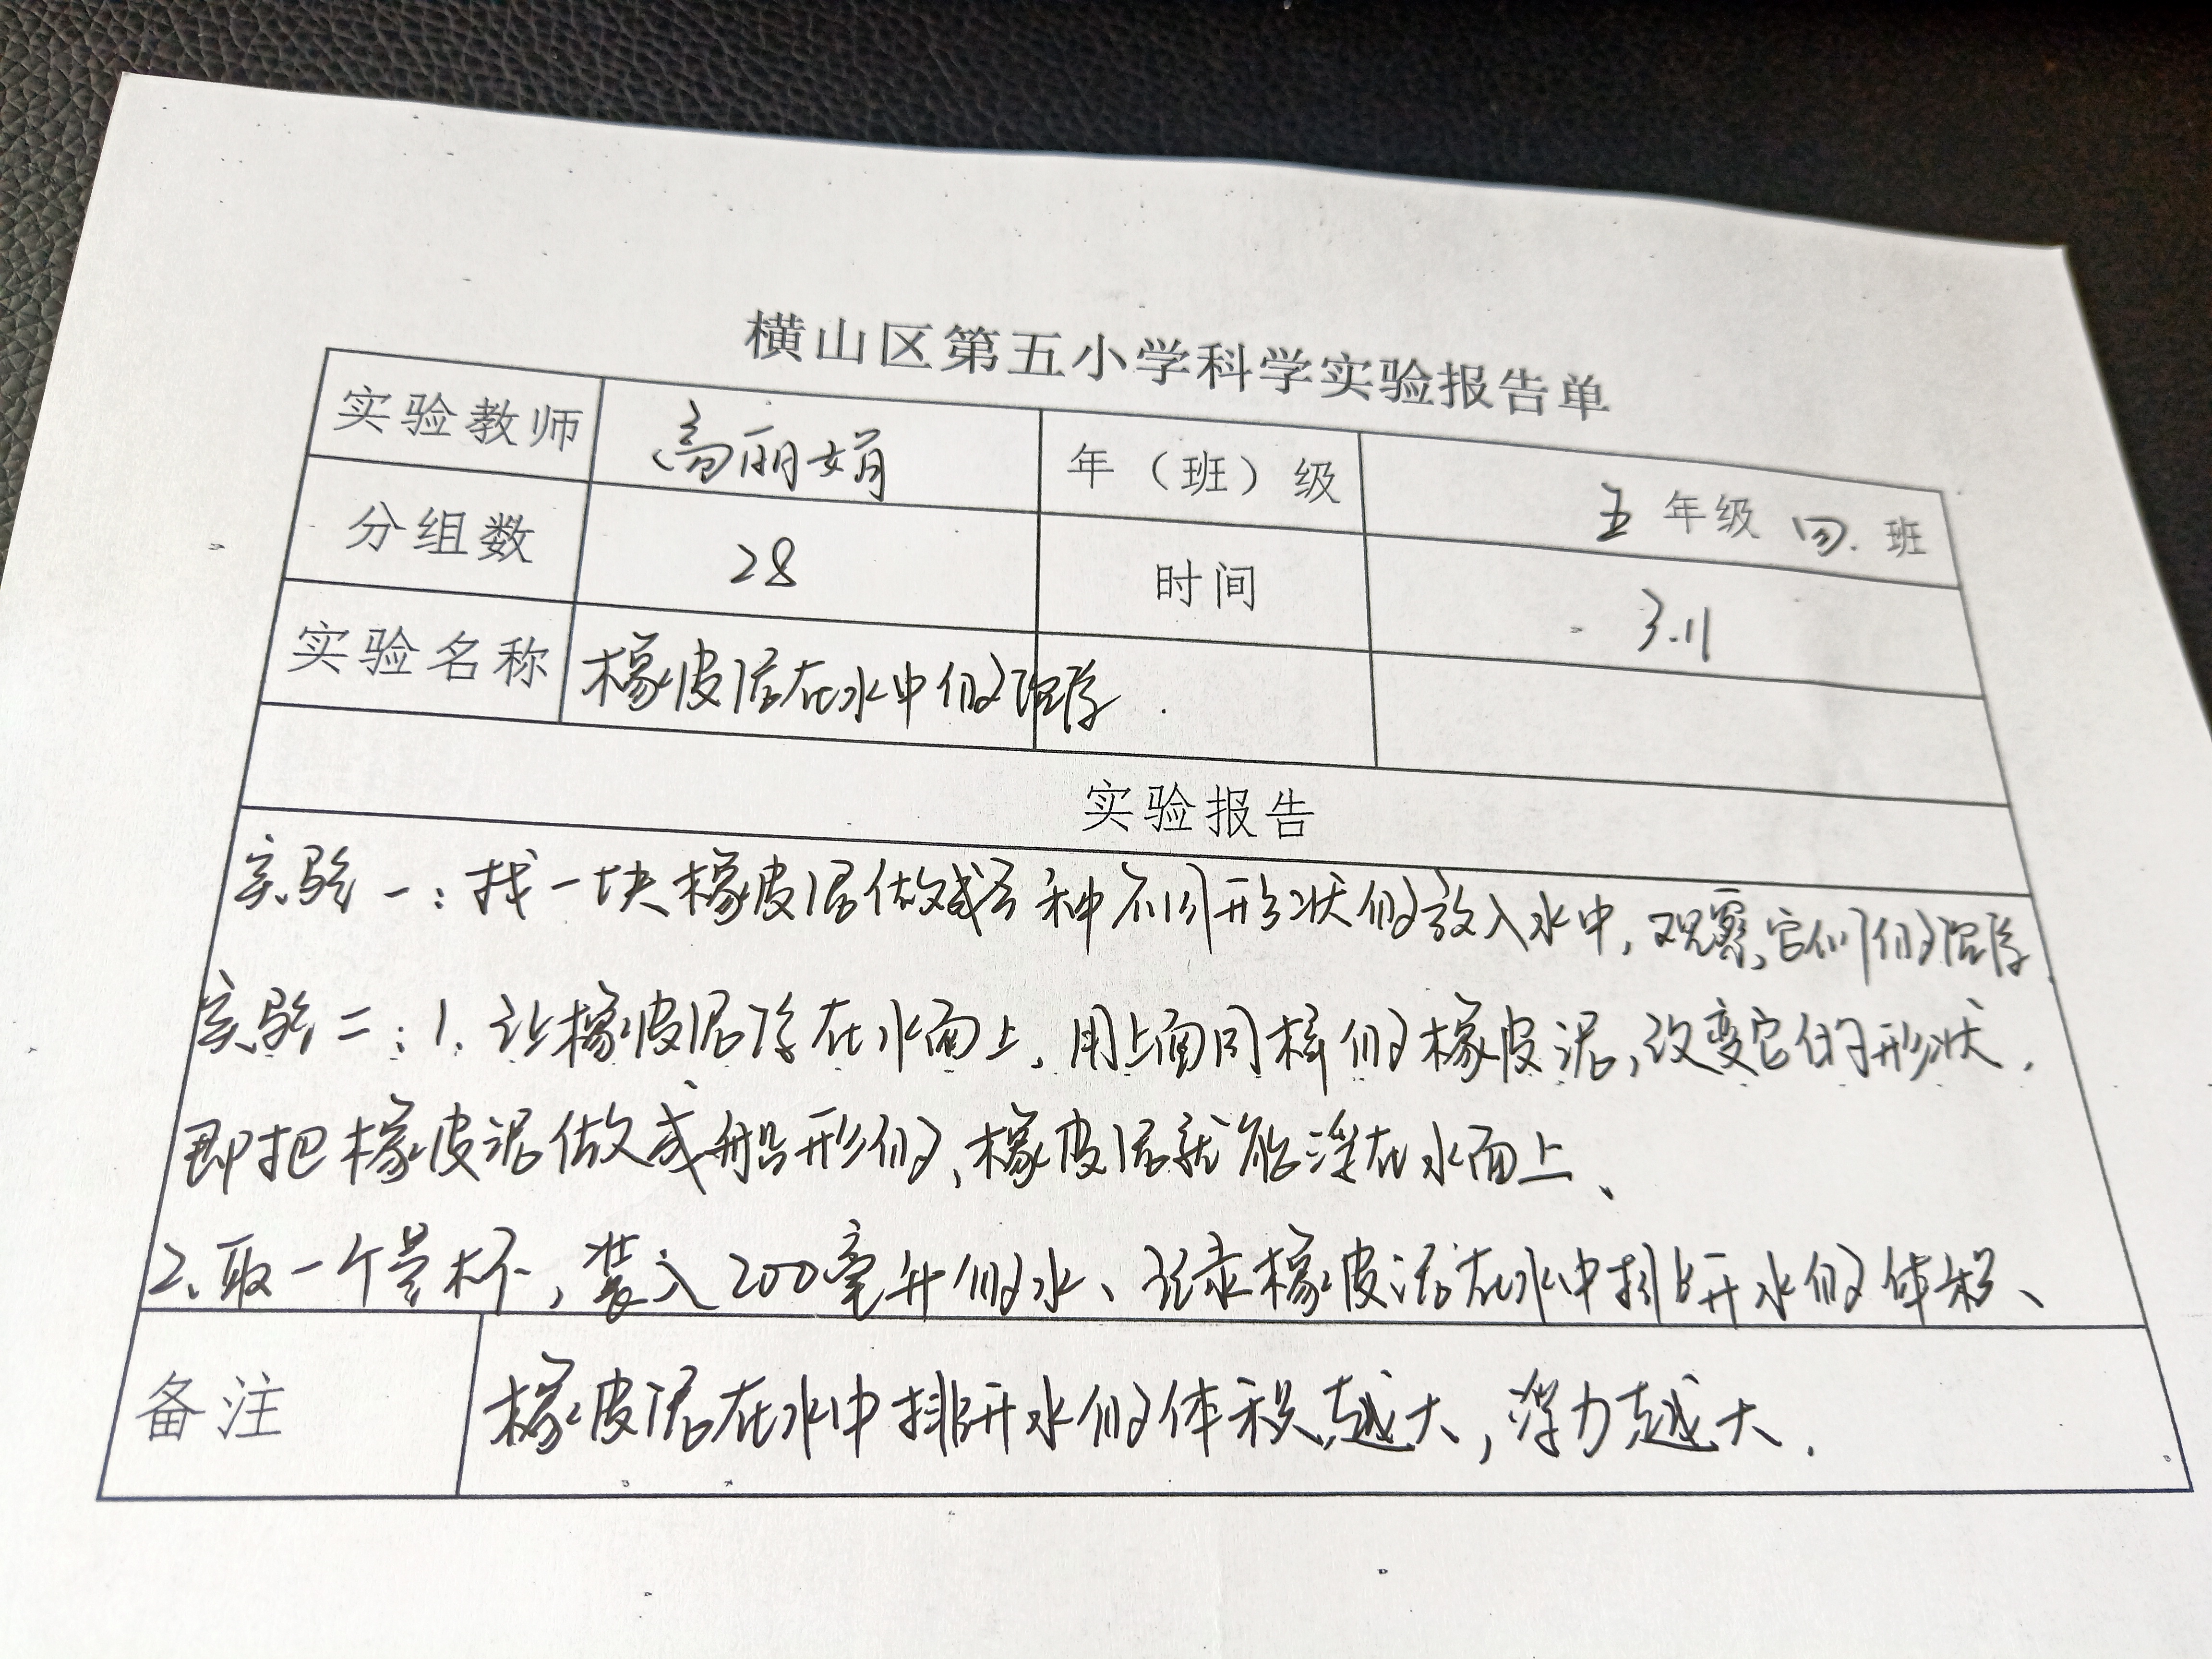 横山区第五小学科学实验报告单
实验教师 高丽娟 年（班）级 五 年级 四 班
分组数 28 时间 3.11
实验名称 橡皮泥在水中的沉浮.
实验报告
实验一：找一块橡皮泥做成各种不同形状的放入水中，观察它们的沉浮.
实验二：1、让橡皮泥浮在水面上，用上面同样的橡皮泥，改变它的形状.
即把橡皮泥做成船形的、橡皮泥就能浮在水面上、
2、取一个量杯，装入200毫升的水、记录橡皮泥在水中排开水的体积、
备注 橡皮泥在水中排开水的体积越大，浮力越大.